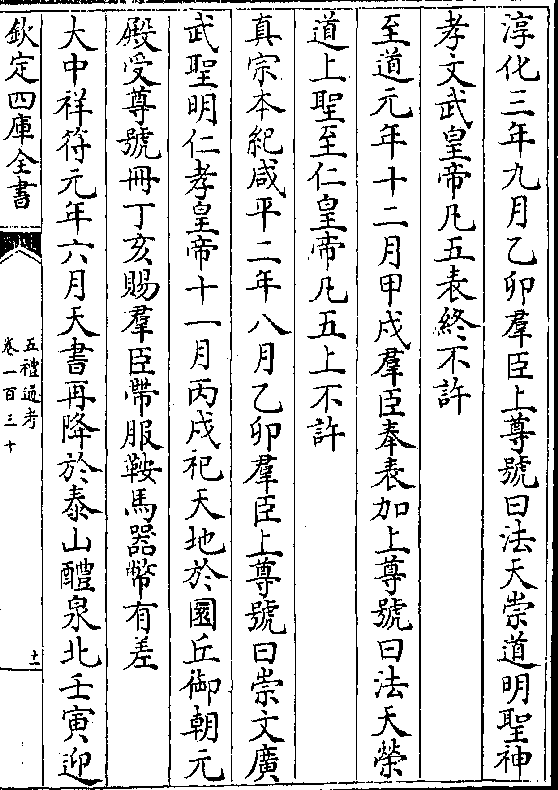 淳化三年九月乙卯羣臣上尊號曰法天崇道明聖神
孝文武皇帝凡五表終不許
至道元年十二月甲戌羣臣奉表加上尊號曰法天榮
道上聖至仁皇帝凡五上不許
真宗本紀咸平二年八月乙卯羣臣上尊號曰崇文廣
武聖明仁孝皇帝十一月丙戌祀天地於圜丘御朝元
殿受尊號冊丁亥賜羣臣帶服鞍馬器幣有差
大中祥符元年六月天書再降於泰山醴泉北壬寅迎
欽定四庫全書
五禮通考
卷一百三十
十一